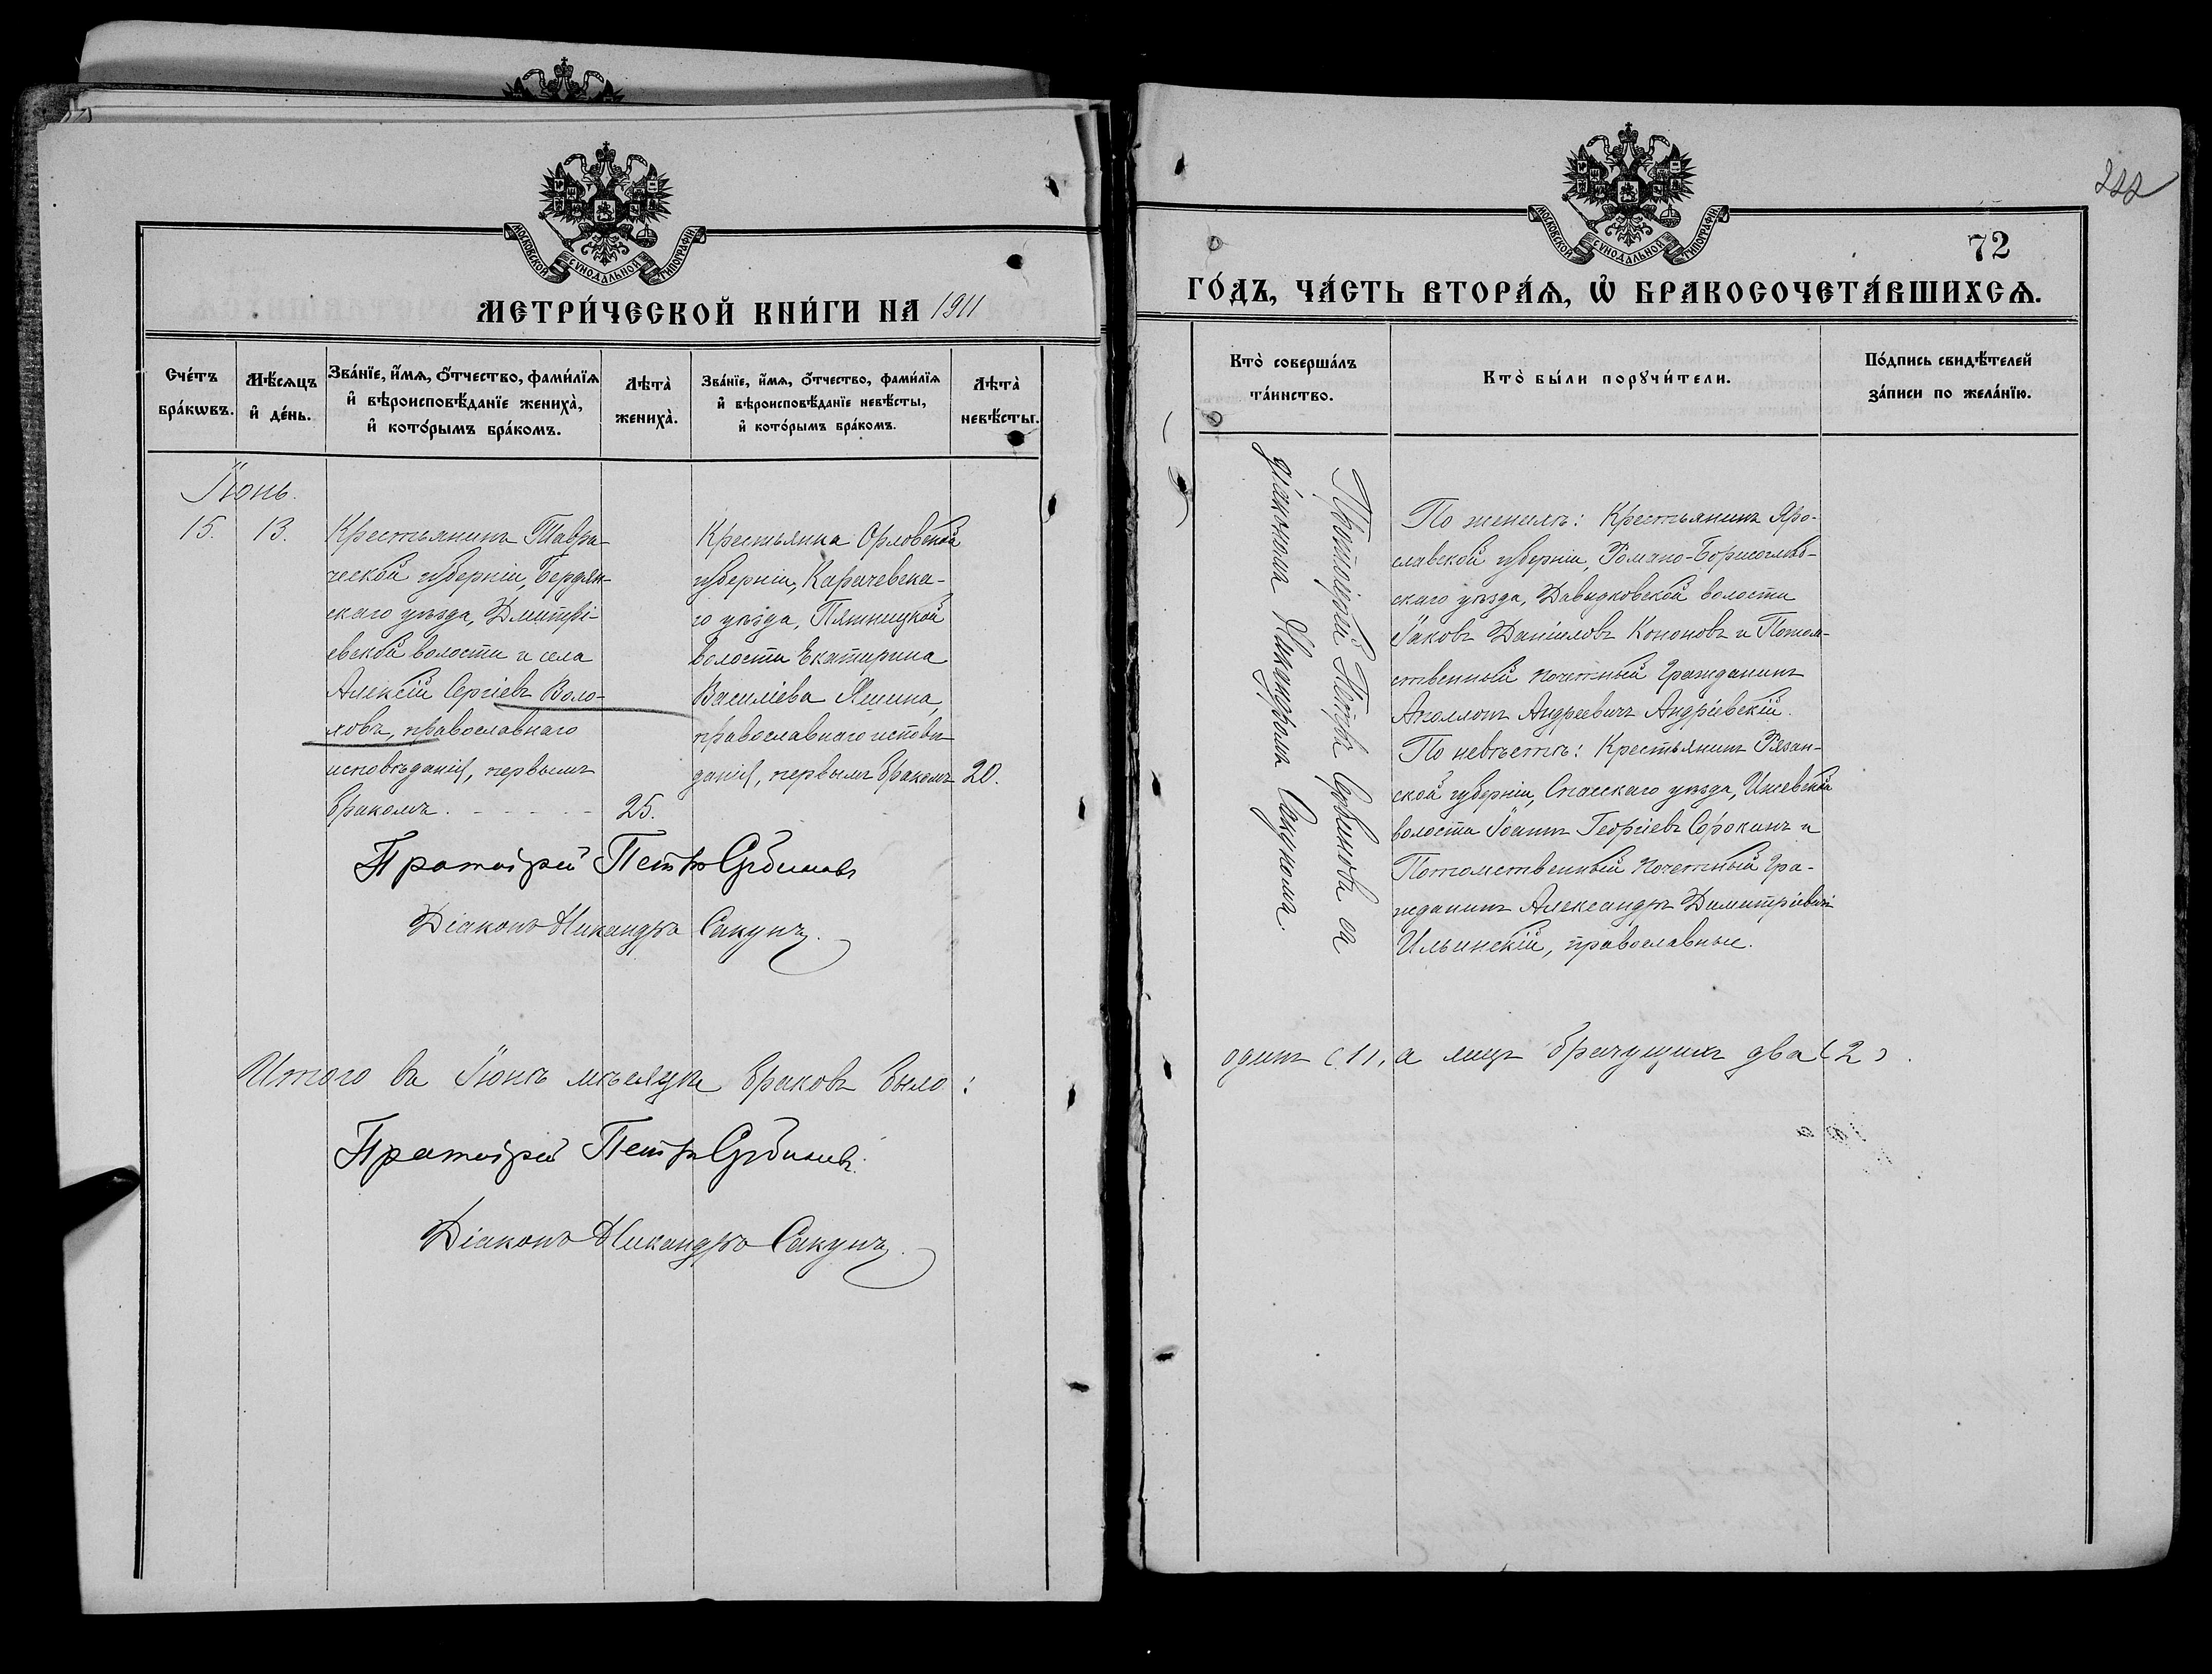 МОСКОВСКОЙ СѴНОДАЛЬНОЙ ТИПОГРАФІИ
МЕТРИ́ЧЕСКОЙ КНИ́ГИ НА 1911
Сче́тъ бра́кѡвъ.
Мѣ́сѧцъ и҆ де́нь.
Зва́нїе, и҆́мѧ, ѻ҆́тчество, фами́лїѧ
и҆ вѣроисповѣ́данїе жениха̀,
и҆ кото́рымъ бра́комъ.
Лѣта̀ жениха̀.
Зва́нїе, и҆́мѧ, ѻ҆́тчество, фами́лїѧ
и҆ вѣроисповѣ́данїе невѣ́сты,
и҆ кото́рымъ бра́комъ.
Лѣта̀ невѣ́сты.
Іюнь.
15. 13.
Крестьянинъ Таври-
ческой губерніи, Бердян-
скаго уѣзда, Дмитрі-
евской волости и села
Алексій Сергіевъ Воло-
ховъ, православнаго
исповѣданія, первымъ
бракомъ. 25.
Крестьянка Орловской
губерніи, Карачевска-
го уѣзда, Пятницкой
волости Екатирина
Василіева Яшина,
православнаго исповѣ-
данія, первымъ бракомъ 20.
Протоіерей Петръ Сербиновъ
Діаконъ Никандръ Сакунъ.
Итого въ Іюнѣ мѣсяцѣ браковъ было:
Протоіерей Петръ Сербиновъ.
Діаконъ Никандръ Сакунъ.
222
72
МОСКОВСКОЙ СѴНОДАЛЬНОЙ ТИПОГРАФІИ
ГО́ДЪ, ЧА́СТЬ ВТОРА́Ѧ, Ѡ҆ БРАКОСОЧЕТА́ВШИХСѦ.
Кто̀ соверша́лъ
та́инство.
Кто̀ бы́ли порꙋчи́тели.
По́дпись свидѣ́телей
за́писи по жела́нїю.
Протоіерей Петръ Сербиновъ съ
діакономъ Никандромъ Сакуномъ.
По женихѣ: Крестьянинъ Яро-
славской губерніи, Романо-Борисоглѣб-
скаго уѣзда, Давыдковской волости
Іаковъ Даніиловъ Кононовъ и Потом-
ственный почетный Гражданинъ
Аполлонъ Андреевичъ Андріевскій.
По невѣстѣ: Крестьянинъ Рязан-
ской губерніи, Спасскаго уѣзда, Ижевской
волости Іоаннъ Георгіевъ Сорокинъ и
Потомственный Почетный Гра-
жданинъ Александръ Димитріевичъ
Ильинскій, православные.
одинъ (1), а лицъ брачущихъ два (2).